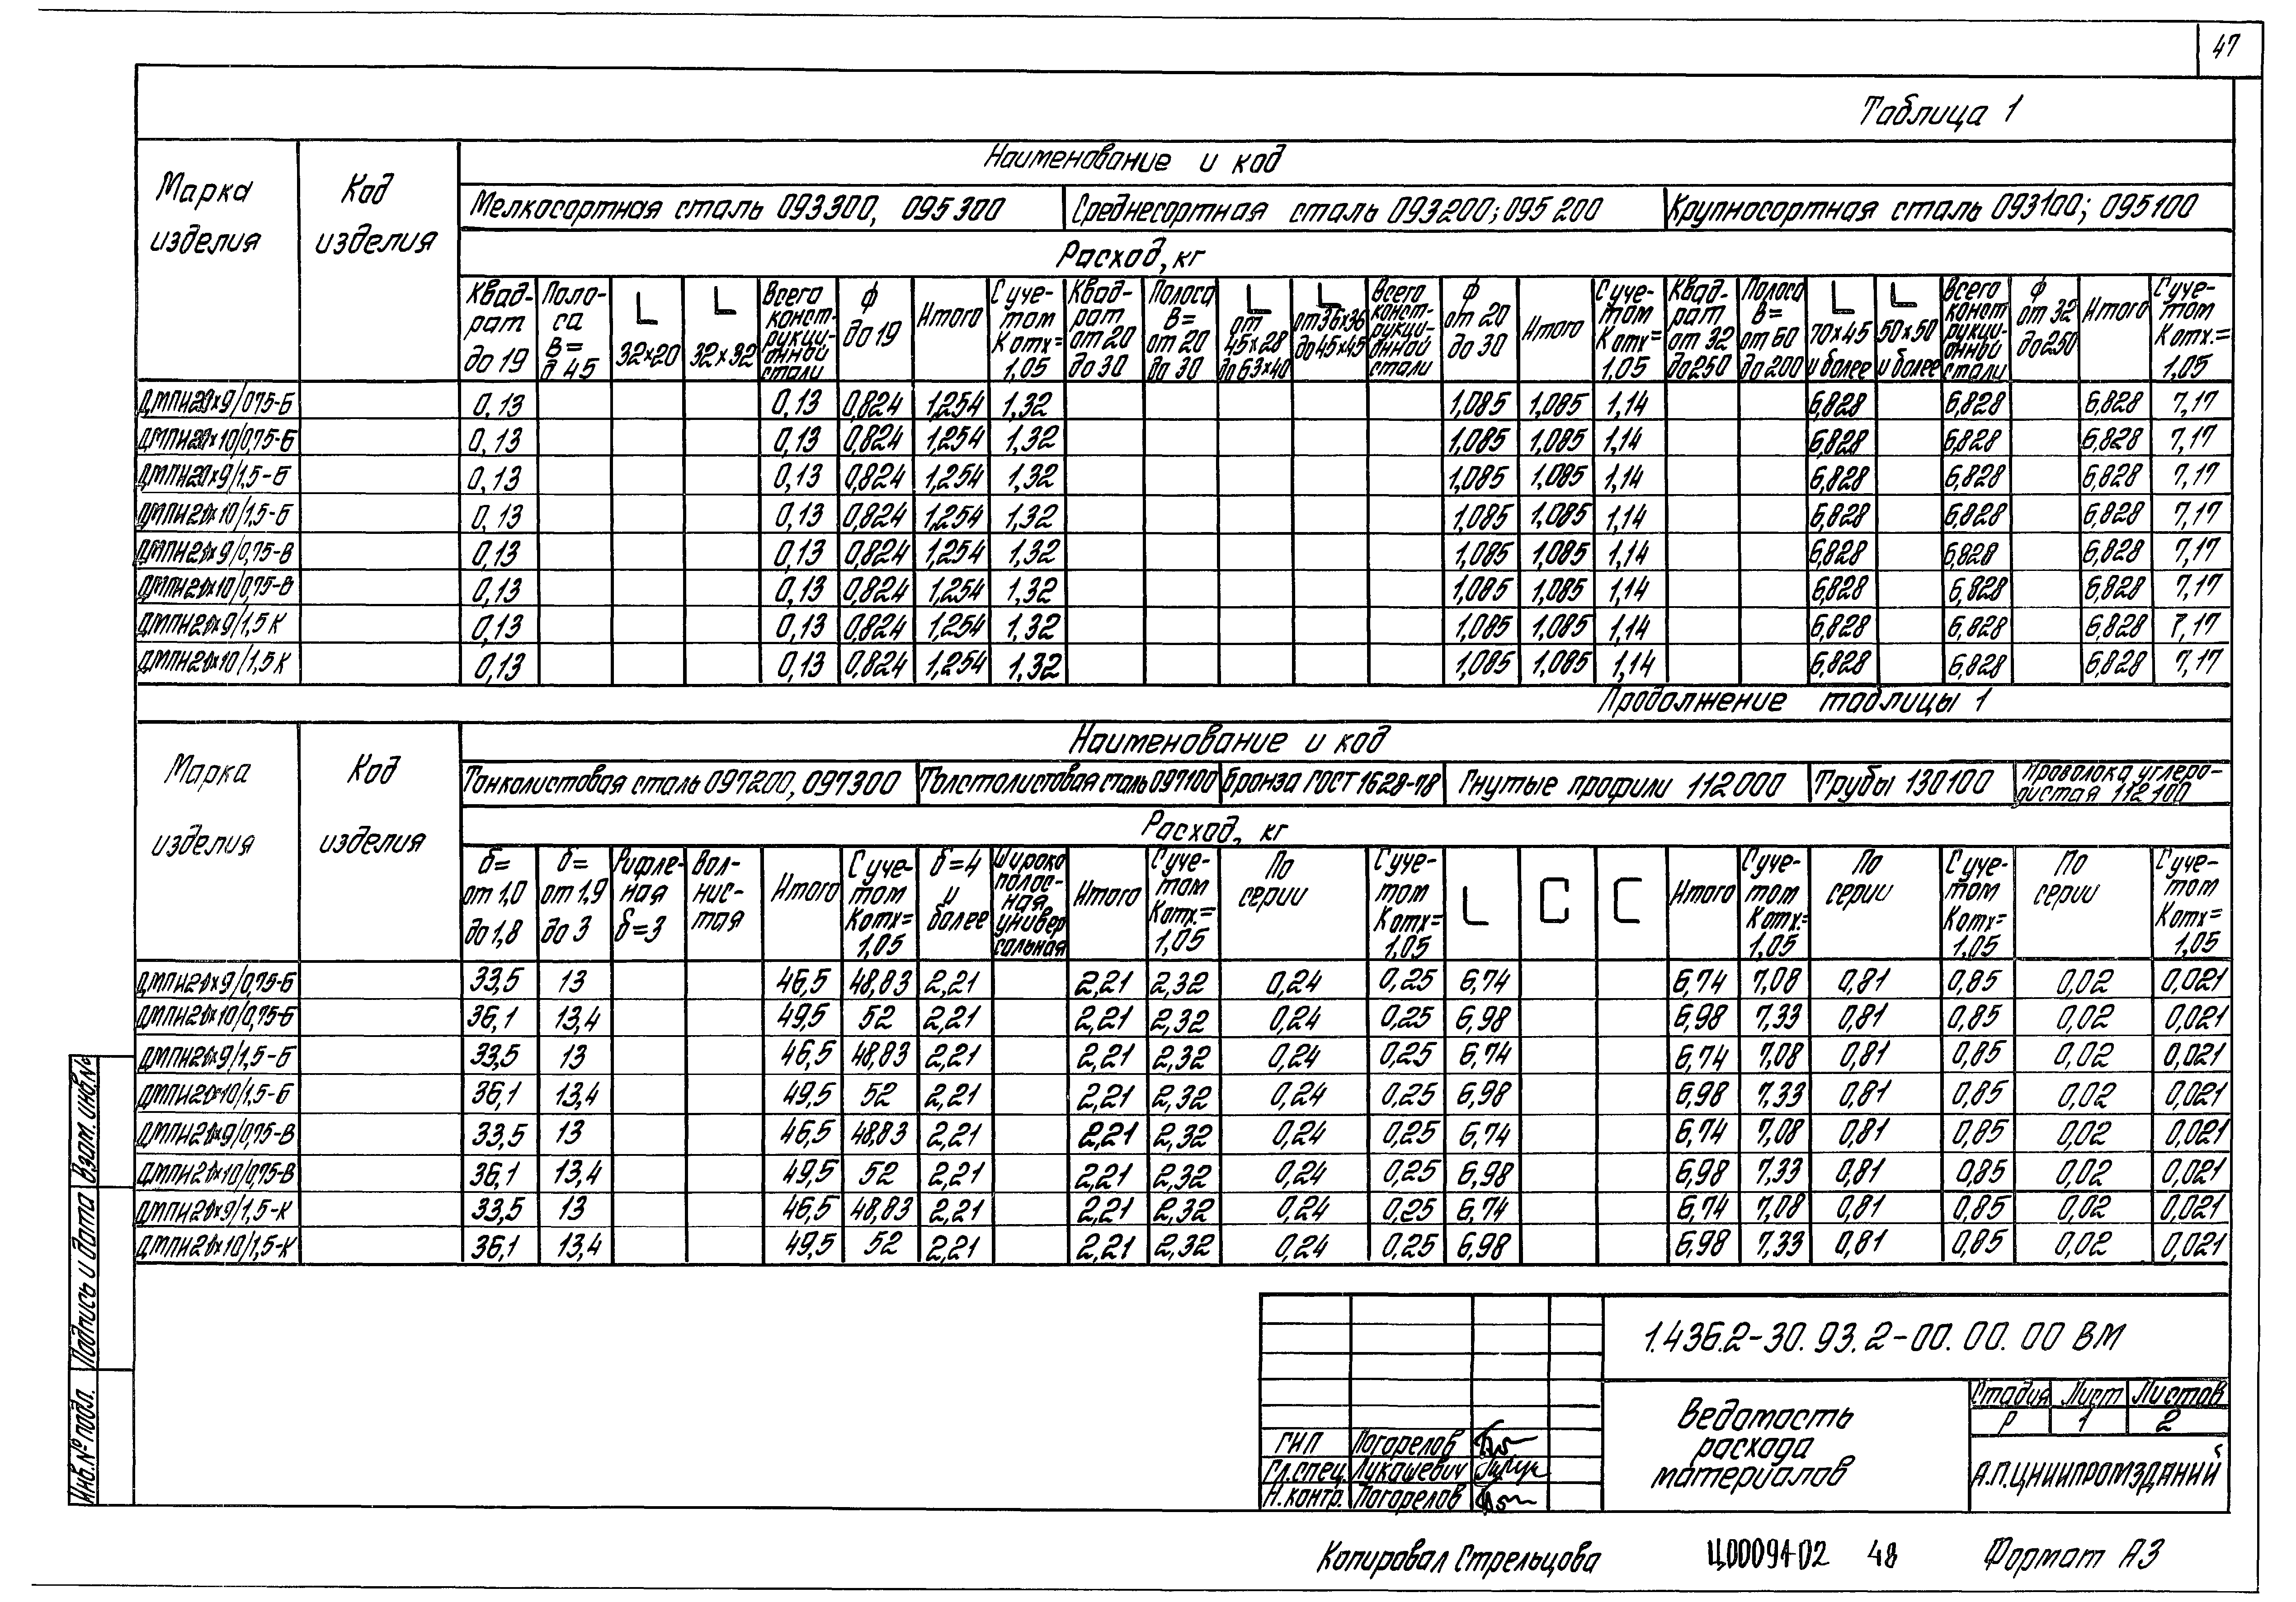 47
Таблица 1
Марка изделия
Код изделия
Наименование и код
Мелкосортная сталь 093300, 095300
Среднесортная сталь 093200; 095200
Крупносортная сталь 093100; 095100
Расход, кг
Квад-рат до 19
Поло-са В= д 45
L 32×20
L 32×32
Всего конст-рукци-онной стали
ф до 19
Итого
С уче-том Котх= 1,05
Квад-рат от 20 до 30
Полоса В= от 20 до 30
L от 45×28 до 63×40
L от 36×36 до 45×45
Всего конст-рукци-онной стали
ф от 20 до 30
Итого
С уче-том Котх= 1,05
Квад-рат от 32 до 250
Полоса В= от 60 до 200
L 70×45 и более
L 50×50 и более
Всего конст рукци-онной стали
ф от 32 до 250
Итого
С уче-том Котх.= 1,05
0,13 0,13 0,824 1,254 1,32 1,085 1,085 1,14 6,828 6,828 6,828 7,17
0,13 0,13 0,824 1,254 1,32 1,085 1,085 1,14 6,828 6,828 6,828 7,17
0,13 0,13 0,824 1,254 1,32 1,085 1,085 1,14 6,828 6,828 6,828 7,17
0,13 0,13 0,824 1,254 1,32 1,085 1,085 1,14 6,828 6,828 6,828 7,17
0,13 0,13 0,824 1,254 1,32 1,085 1,085 1,14 6,828 6,828 6,828 7,17
0,13 0,13 0,824 1,254 1,32 1,085 1,085 1,14 6,828 6,828 6,828 7,17
0,13 0,13 0,824 1,254 1,32 1,085 1,085 1,14 6,828 6,828 6,828 7,17
0,13 0,13 0,824 1,254 1,32 1,085 1,085 1,14 6,828 6,828 6,828 7,17
Продолжение таблицы 1
Марка изделия
Код изделия
Наименование и код
Тонколистовая сталь 097200, 097300
Толстолистовая сталь 097100
Бронза ГОСТ 1628-78
Гнутые профили 112000
Трубы 130100
Проволока углеро-дистая 112100
Расход, кг
б= от 1,0 до 1,8
б= от 1,9 до 3
Рифле-ная б=3
Вол-нис-тая
Итого
С уче-том Котх= 1,05
б=4 и более
Широко полос-ная универ сальная
Итого
С уче-том Котх.= 1,05
По серии
С уче-том Котх= 1,05
Итого
С уче-том Котх.= 1,05
По серии
С уче-том Котх= 1,05
По серии
С уче-том Котх= 1,05
33,5 13 46,5 48,83 2,21 2,21 2,32 0,24 0,25 6,74 6,74 7,08 0,81 0,85 0,02 0,021
36,1 13,4 49,5 52 2,21 2,21 2,32 0,24 0,25 6,98 6,98 7,33 0,81 0,85 0,02 0,021
33,5 13 46,5 48,83 2,21 2,21 2,32 0,24 0,25 6,74 6,74 7,08 0,81 0,85 0,02 0,021
36,1 13,4 49,5 52 2,21 2,21 2,32 0,24 0,25 6,98 6,98 7,33 0,81 0,85 0,02 0,021
33,5 13 46,5 48,83 2,21 2,21 2,32 0,24 0,25 6,74 6,74 7,08 0,81 0,85 0,02 0,021
36,1 13,4 49,5 52 2,21 2,21 2,32 0,24 0,25 6,98 6,98 7,33 0,81 0,85 0,02 0,021
33,5 13 46,5 48,83 2,21 2,21 2,32 0,24 0,25 6,74 6,74 7,08 0,81 0,85 0,02 0,021
36,1 13,4 49,5 52 2,21 2,21 2,32 0,24 0,25 6,98 6,98 7,33 0,81 0,85 0,02 0,021
Взам. инв.№
Подпись и дата
Инв.№ подл.
1.436.2-30.93.2-00.00.00 ВМ
Ведомость
расхода
материалов
Стадия Лист Листов
Р 1 2
ГИП Погорелов
Гл.спец. Лукашевич
Н.контр. Погорелов
А.П.ЦНИИПРОМЗДАНИЙ
Копировал Стрельцова Ц00094-02 48 Формат А3